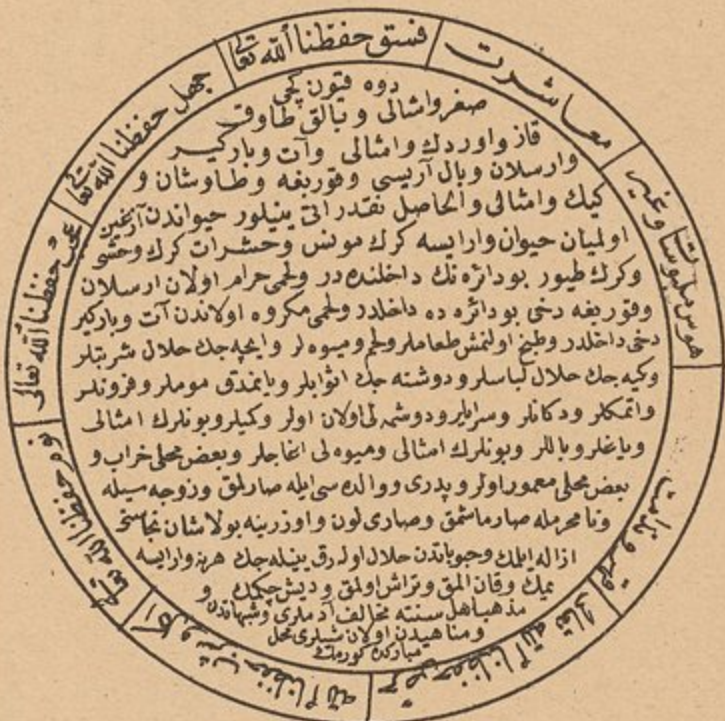 فسق حفظنا الله تعالى
معاشرت
هوس ملبوسات وغيره
حرص حفظنا الله تعالى
اكل وشرب حفظنا الله
نوم حفظنا الله تعالى
عجب حفظنا الله تعالى
جهل حفظنا الله تعالى
دوه قيون كچى
صغر وامثالى و بالق طاوق
قاز واوردك وامثالى وآت وباركير
وارسلان وبال آريسى وقوربغه وطاوشان و
كيك وامثالى والحاصل نقدر اتى ينيلور حيواندن آز غيرى
اولميان حيوان وارايسه كرك مونس وحشرات كرك وحشى
وكرك طيور بودائره نك داخلنده در ولحمى حرام اولان ارسلان
وقوربغه دخى بو دائره ده داخلدر ولحمى مكروه اولاندن آت وباركير
دخى داخلدر وطبخ اولنمش طعاملر ولحم وميوه لر وايچه جك حلال شربتلر
وكيه جك حلال لباسلر ودوشنه جك اثوابلر ويانمدق موملر وفرونلر
واتمكلر ودكانلر وسرايلر ودوشمه لى اولان اولر وكيلر وبونلرك امثالى
وياغلر وباللر وبونلرك امثالى وميوه لى اغاجلر وبعض محلى خراب و
بعض محلى معمور اولر وپدرى ووالده سى ايله صارلمق وزوجه سيله
ونامحرمله صارماشمق وصارى لون واوزرينه بولاشان نجاستى
ازاله ايلمك وحبوباتدن حلال اوله رق ينيله جك هرنه وارايسه
يمك وقان المق وتراش اولمق وديش چكمك و
مذهب اهل سنته مخالف آدملرى وشبهاتدن
ومناهيدن اولان شيلرى محل
مباركده كورمك